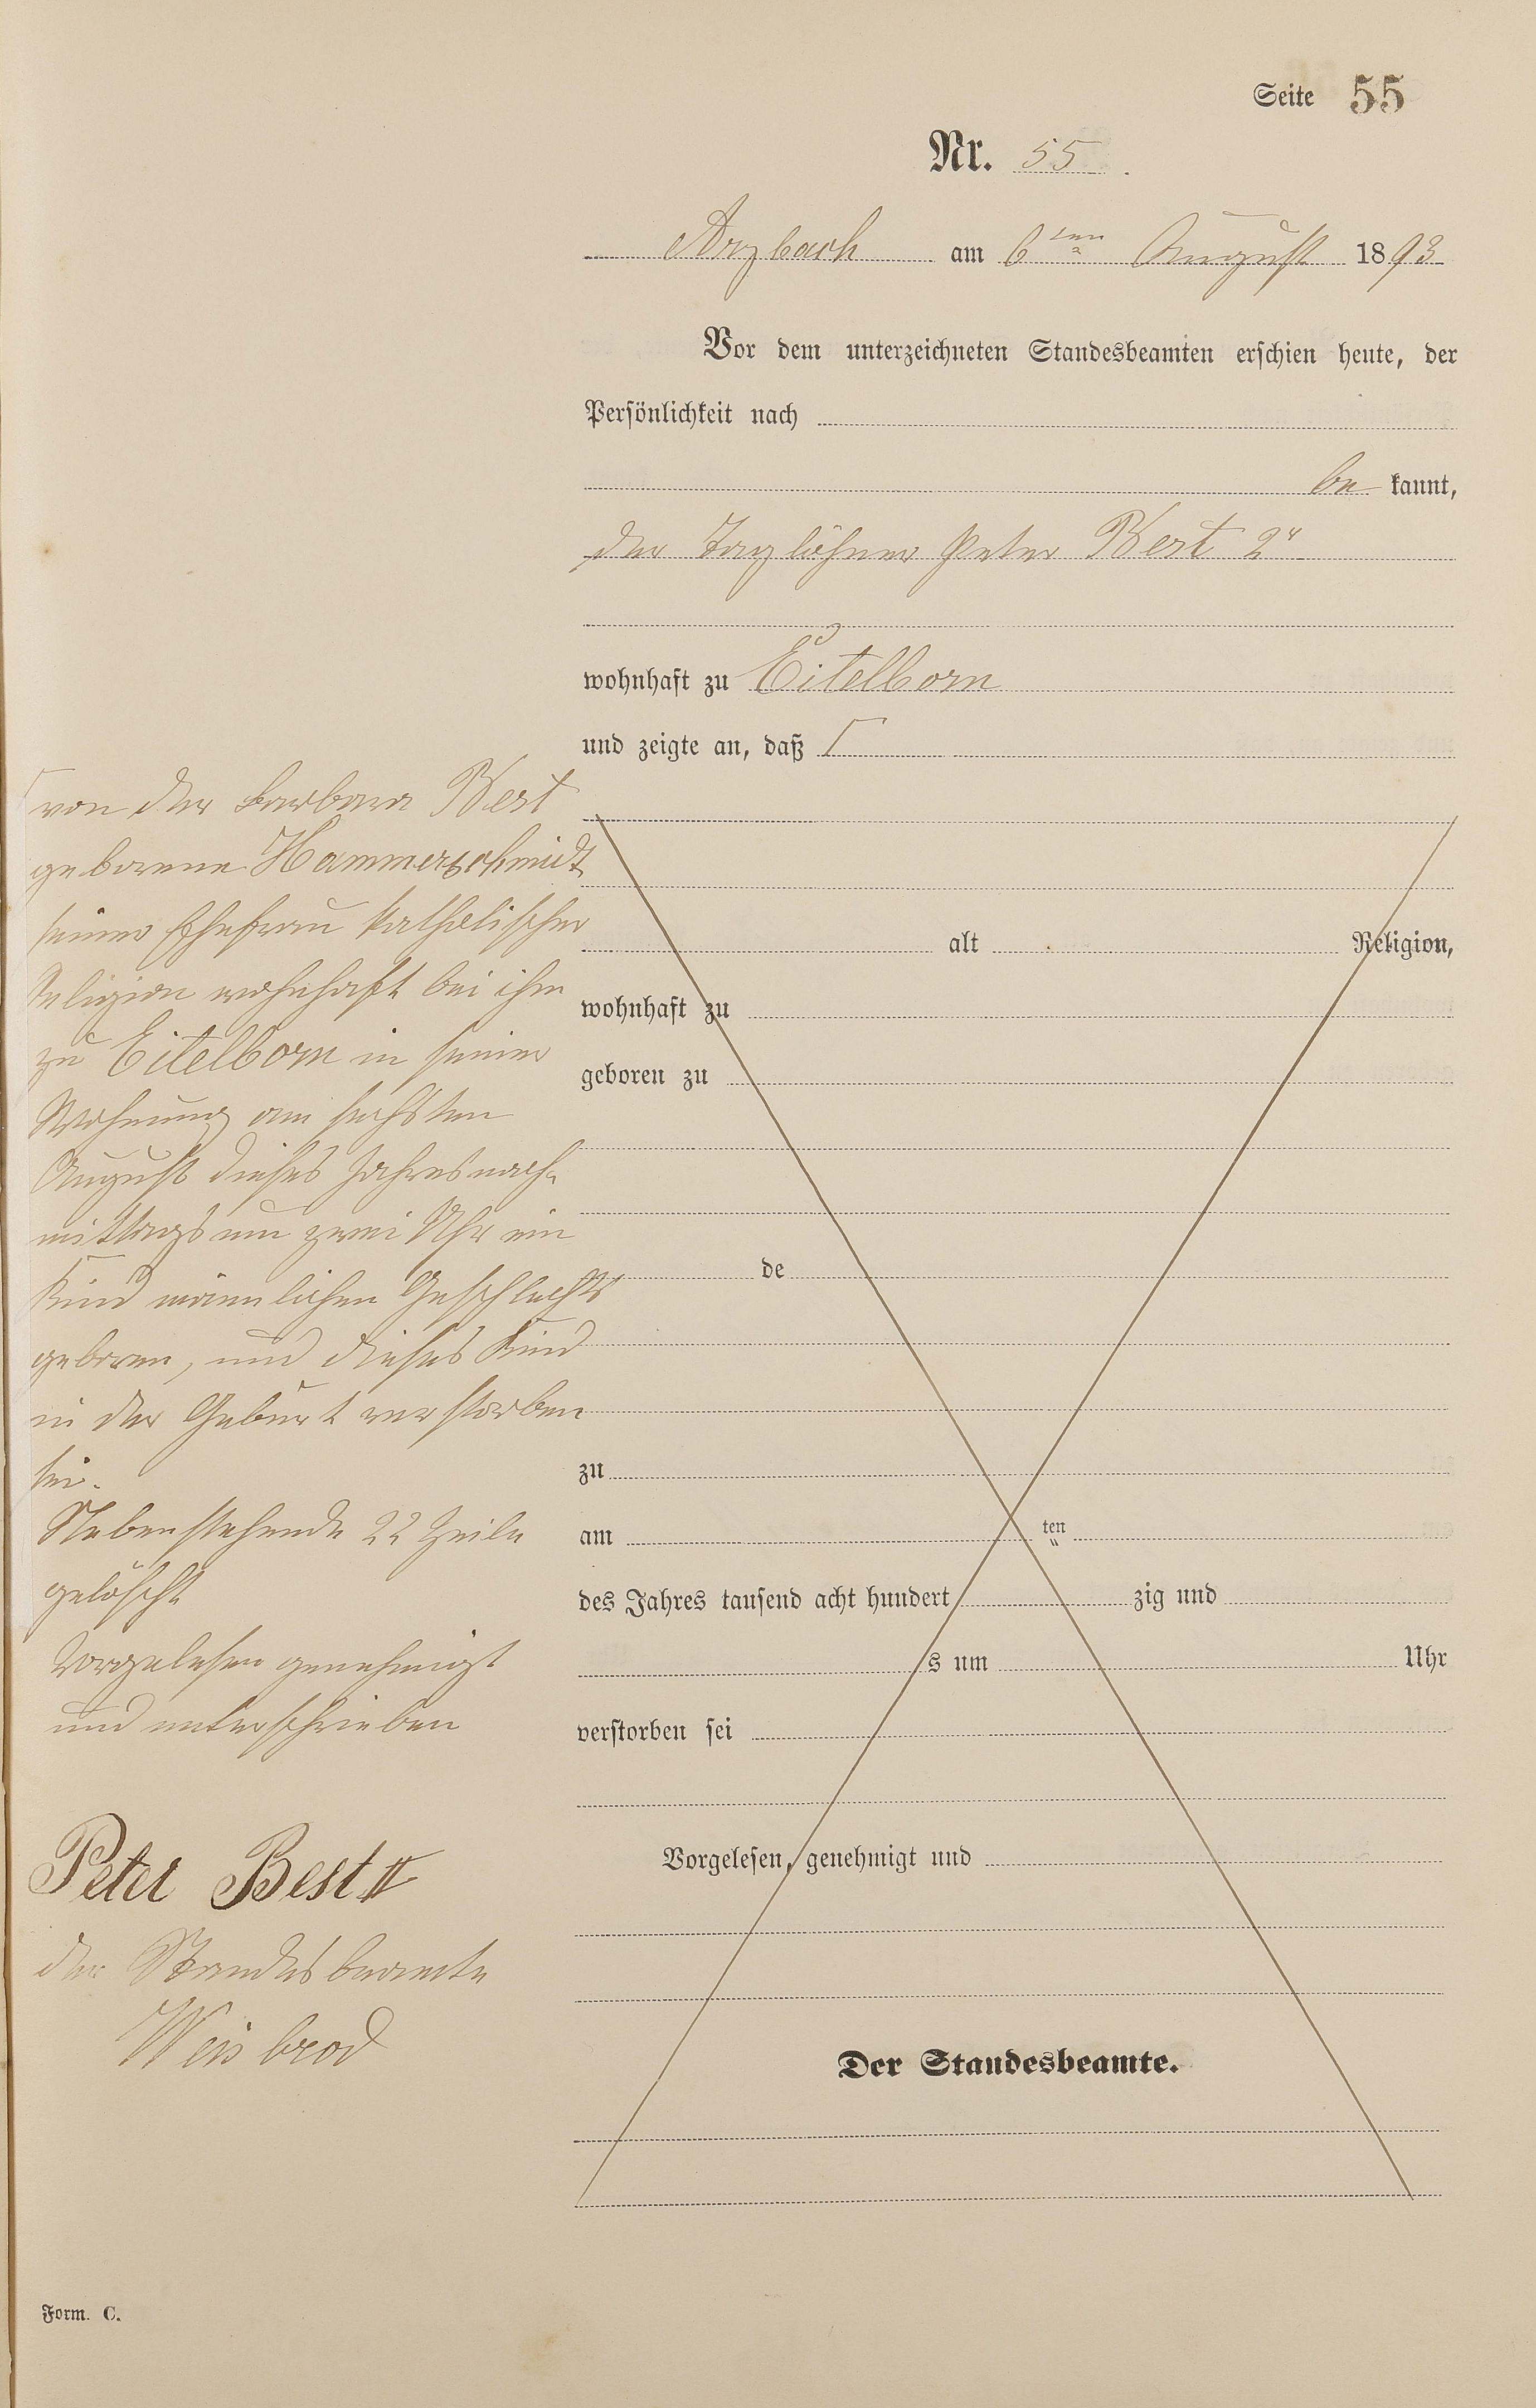 Seite 55
Nr. 55.
Arzbach am 6ten August 1893
Vor dem unterzeichneten Standesbeamten erschien heute, der
Persönlichkeit nach
be kannt,
der Taglöhner Peter Best 2r
wohnhaft zu Eitelborn
und zeigte an, daß Γ
Γ von der Barbara Best
geborene Hammerschmidt
seiner Ehefrau katholischer
Religion wohnhaft bei ihm
zu Eitelborn in seiner
Wohnung am sechsten
August dieses Jahres nach-
mittags um zwei Uhr ein
Kind männlichen Geschlechts
geboren, und dieses Kind
in der Geburt verstorben
sei.
Nebenstehende 22 Zeile
gelöscht
Vorgelesen genehmigt
und unterschrieben
Peter Best II
der Standesbeamte
Weisbrod
alt Religion,
wohnhaft zu
geboren zu
de
zu
am ten
des Jahres tausend acht hundert zig und
s um Uhr
verstorben sei
Vorgelesen, genehmigt und
Der Standesbeamte.
Form. C.